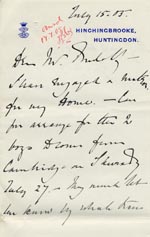 July 15. 05
HINCHINGBROOKE,
HUNTINGDON.
Dear Mr.
I have engaged a
for my Home. - Can
you arrange for the 2
boys to come from
Cambridge on Thursday
July 27 - My
know by what train